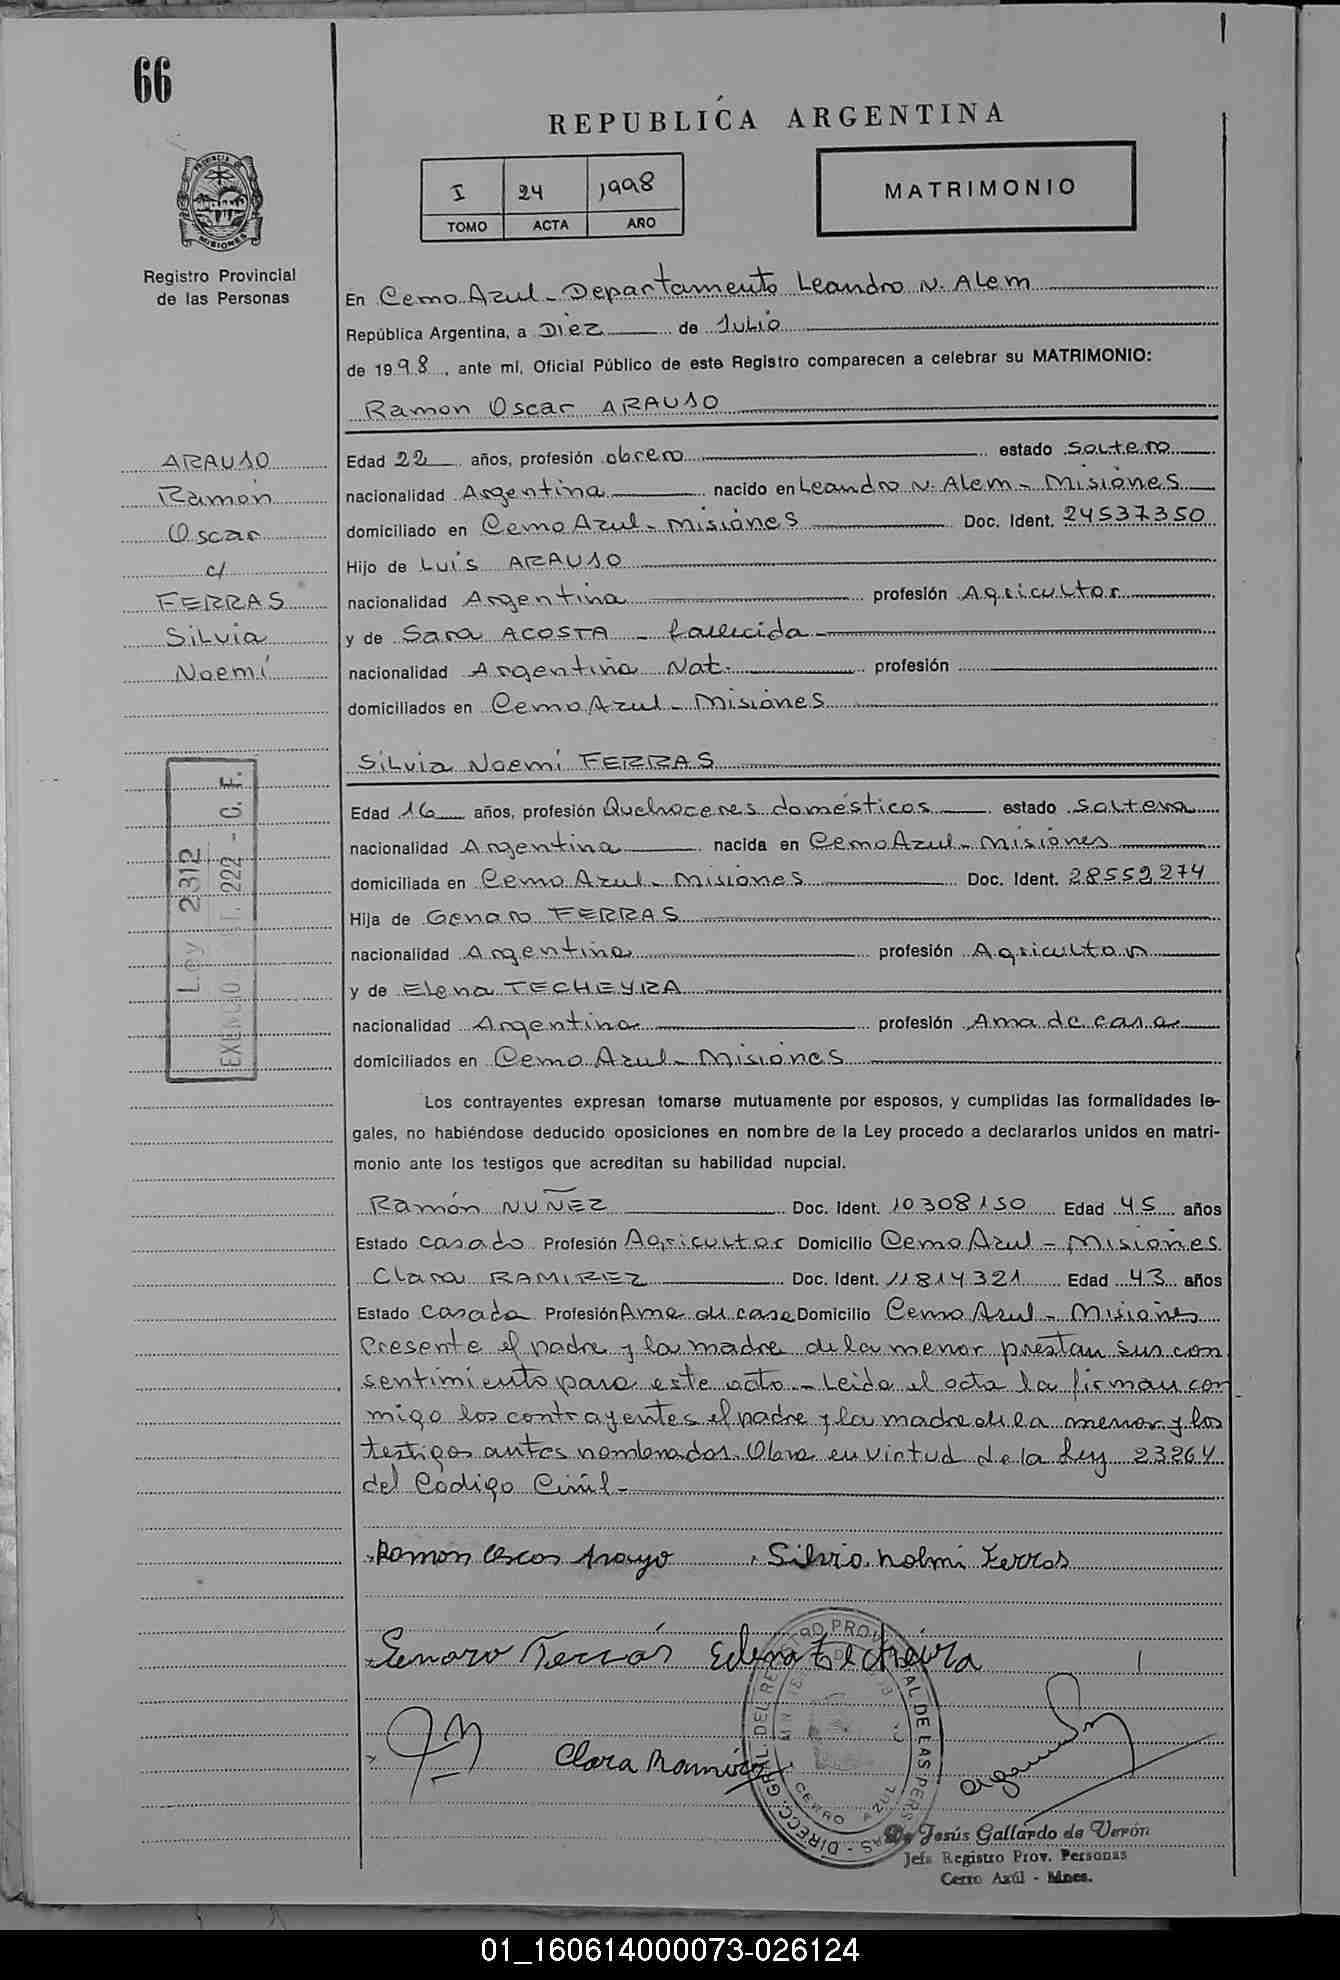 66
REPUBLICA ARGENTINA
I 24 1998
TOMO ACTA AÑO
MATRIMONIO
PROVINCIA DE MISIONES
Registro Provincial
de las Personas
En Cerro Azul - Departamento Leandro N. Alem
República Argentina, a Diez de Julio
de 1998, ante mí, Oficial Público de este Registro comparecen a celebrar su MATRIMONIO:
Ramon Oscar ARAUJO
ARAUJO
Ramon
Oscar
c/
FERRAS
Silvia
Noemí
Edad 22 años, profesión obrero estado soltero
nacionalidad Argentina nacido en Leandro N. Alem - Misiones
domiciliado en Cerro Azul - Misiones Doc. Ident. 24537350
Hijo de Luis ARAUJO
nacionalidad Argentina profesión Agricultor
y de Sara ACOSTA - fallecida -
nacionalidad Argentina Nat. profesión
domiciliados en Cerro Azul - Misiones
Silvia Noemí FERRAS
Ley 2312
EXENCIO T. 222 - C. F.
Edad 16 años, profesión Quehaceres domésticos estado soltera
nacionalidad Argentina nacida en Cerro Azul - Misiones
domiciliada en Cerro Azul - Misiones Doc. Ident. 28559274
Hija de Genaro FERRAS
nacionalidad Argentina profesión Agricultor
y de Elena TECHEYRA
nacionalidad Argentina profesión Ama de casa
domiciliados en Cerro Azul - Misiones
Los contrayentes expresan tomarse mutuamente por esposos, y cumplidas las formalidades le-
gales, no habiéndose deducido oposiciones en nombre de la Ley procedo a declararlos unidos en matri-
monio ante los testigos que acreditan su habilidad nupcial.
Ramón NUÑEZ Doc. Ident. 10308150 Edad 45 años
Estado casado Profesión Agricultor Domicilio Cerro Azul - Misiones
Clara RAMIREZ Doc. Ident. 11814321 Edad 43 años
Estado casada Profesión Ama de casa Domicilio Cerro Azul - Misiones
Presente el padre y la madre de la menor prestan sus con
sentimiento para este acto - Leida el acta la firman con
migo los contrayentes el padre y la madre de la menor y los
testigos antes nombrados. Obra en virtud de la Ley 23264
del Código Civil -
Ramon Oscar Araujo Silvia Noemi Ferras
Genaro Ferrás Elena Techeira
Clara Ramirez
DIRECC. GRAL. DEL REGISTRO PROVINCIAL DE LAS PERSONAS
CERRO AZUL
De Jesús Gallardo de Verón
Jefa Registro Prov. Personas
Cerro Azúl - Mnes.
01_160614000073-026124